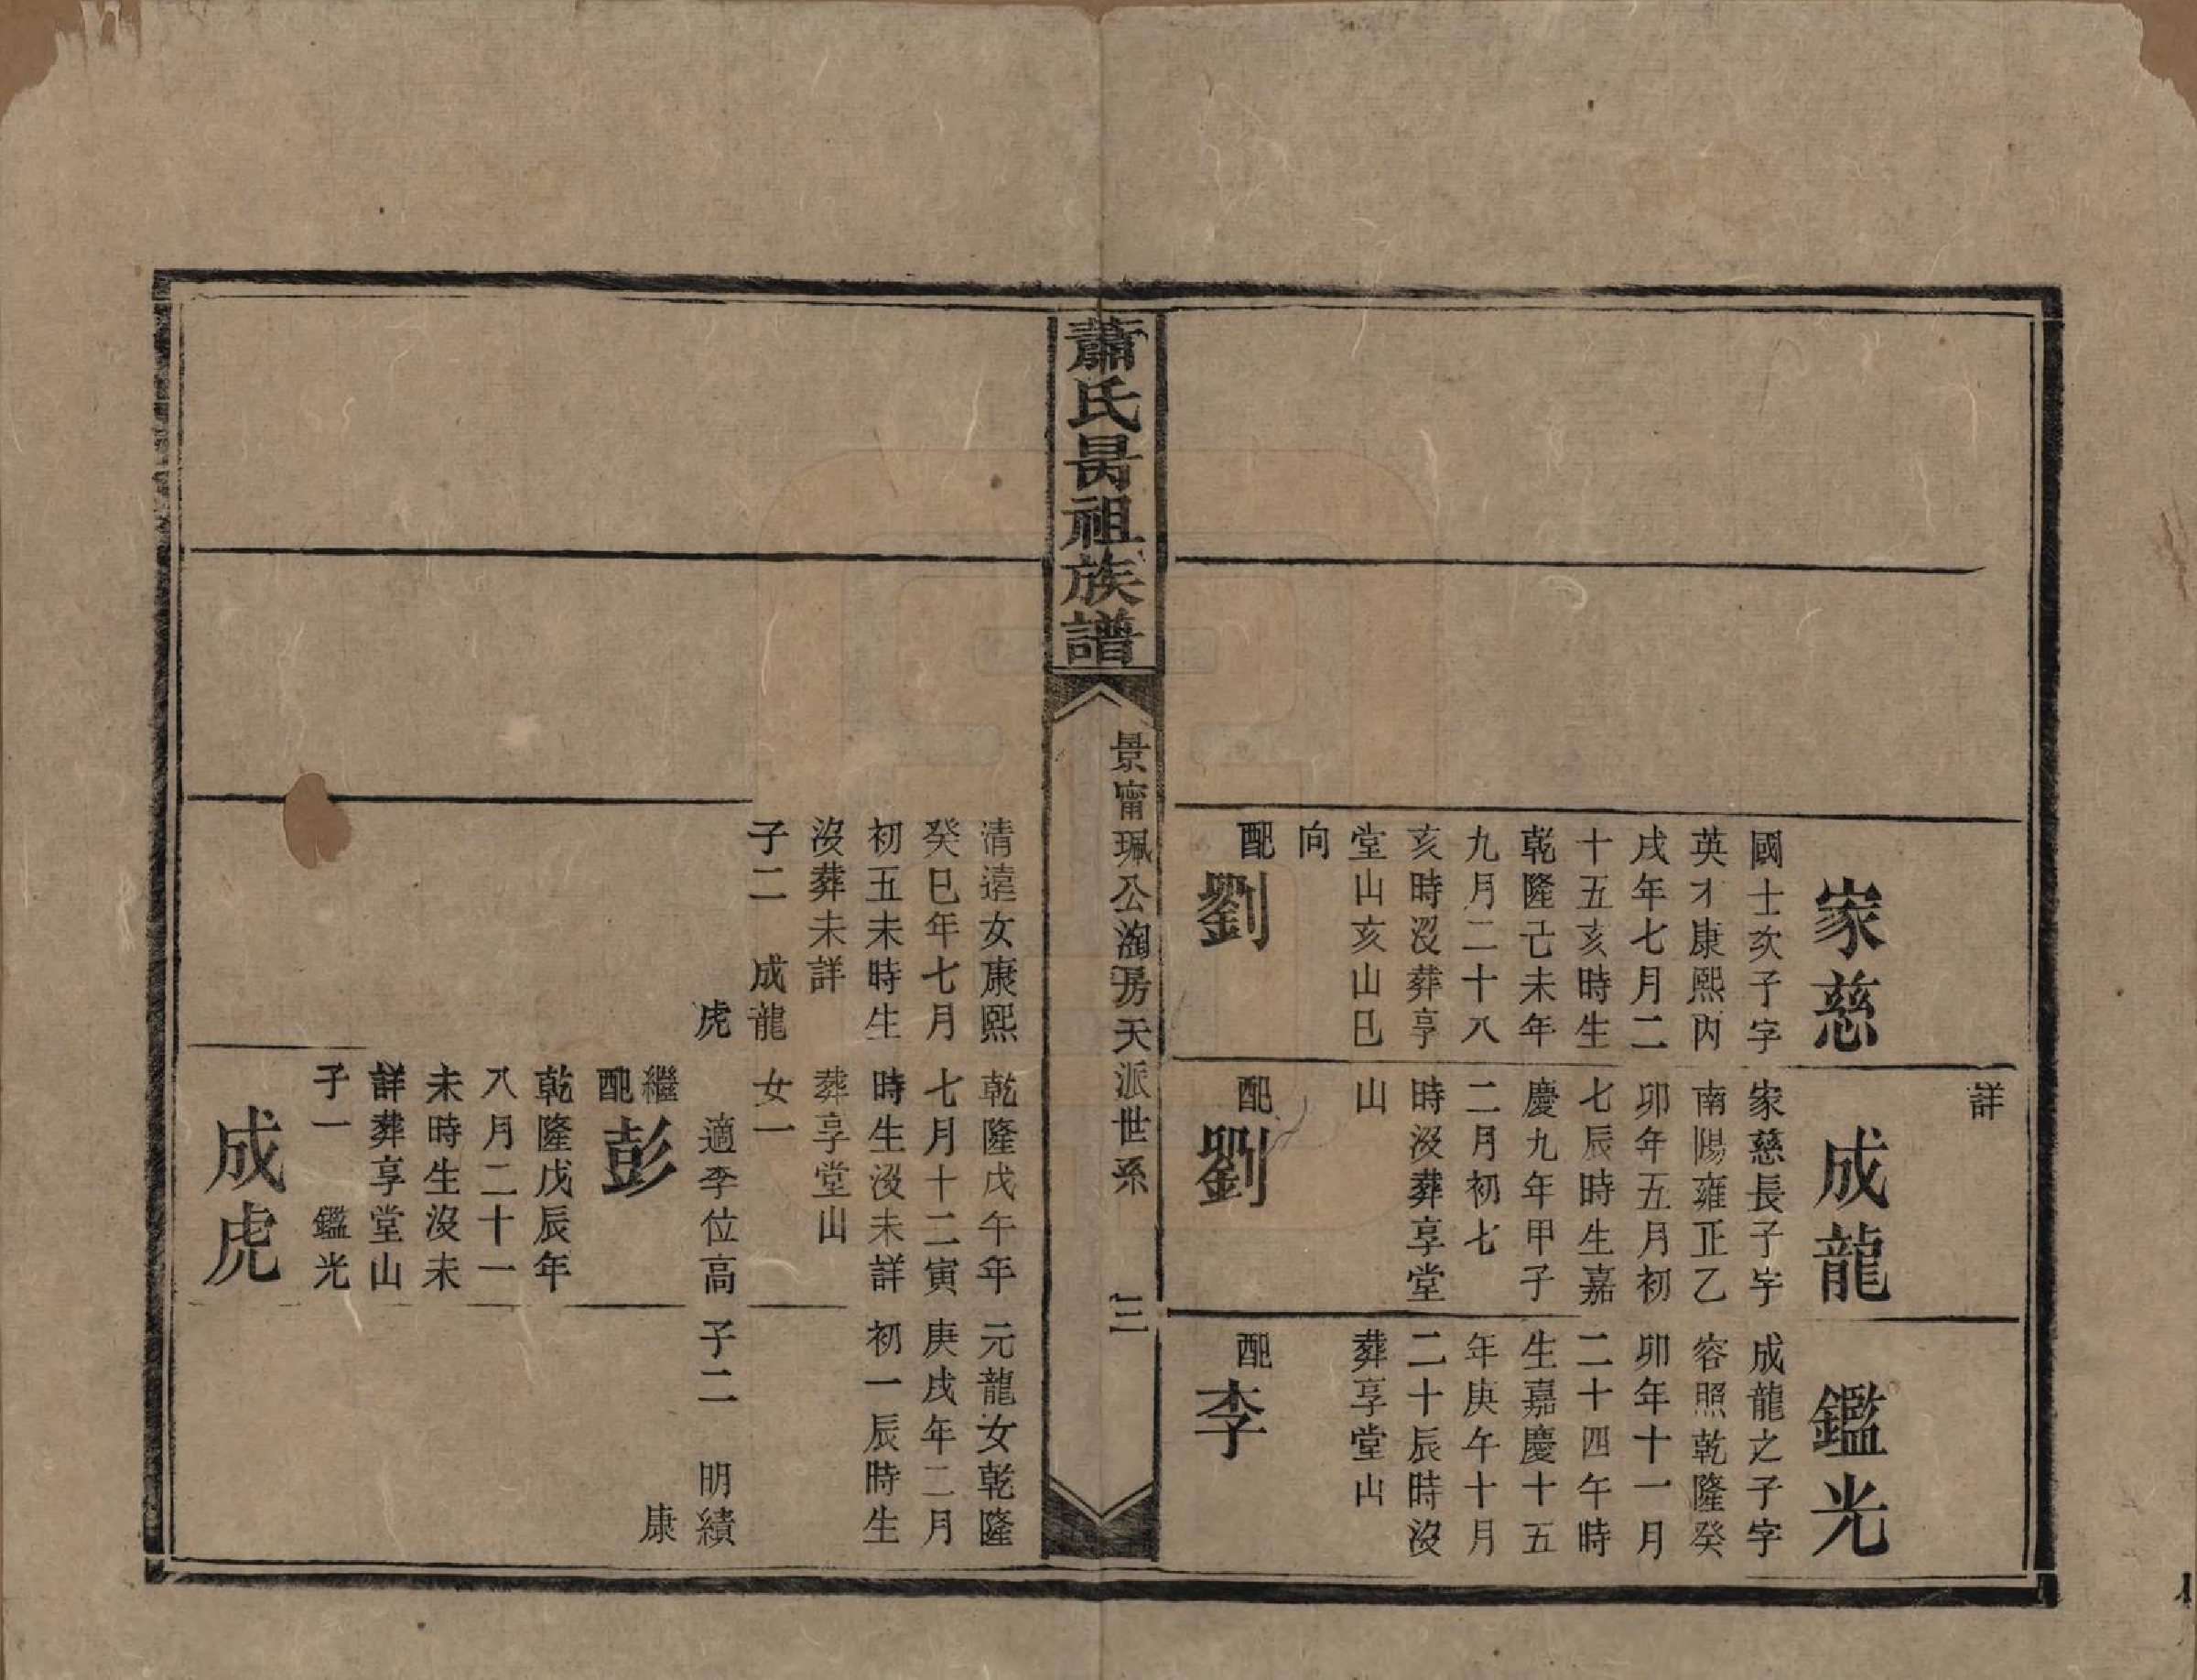 詳
家慈
國士次子字
英才康熙丙
戌年七月二
十五亥時生
乾隆己未年
九月二十八
亥時沒葬享
堂山亥山巳
向
配劉
成龍
家慈長子字
南陽雍正乙
卯年五月初
七辰時生嘉
慶九年甲子
二月初七
時沒葬享堂
山
配劉
鑑光
成龍之子字
容照乾隆癸
卯年十一月
二十四午時
生嘉慶十五
年庚午十月
二十辰時沒
葬享堂山
配李
蕭氏昺祖族譜
景甯珮公淘房天派世系
三
清遠女康熙
癸巳年七月
初五未時生
沒葬未詳
子二 成龍
虎
乾隆戊午年
七月十二寅
時生沒未詳
葬享堂山
女一
適李位高
繼配彭
乾隆戊辰年
八月二十一
未時生沒未
詳葬享堂山
子一 鑑光
成虎
元龍女乾隆
庚戌年二月
初一辰時生
子二 明績
康